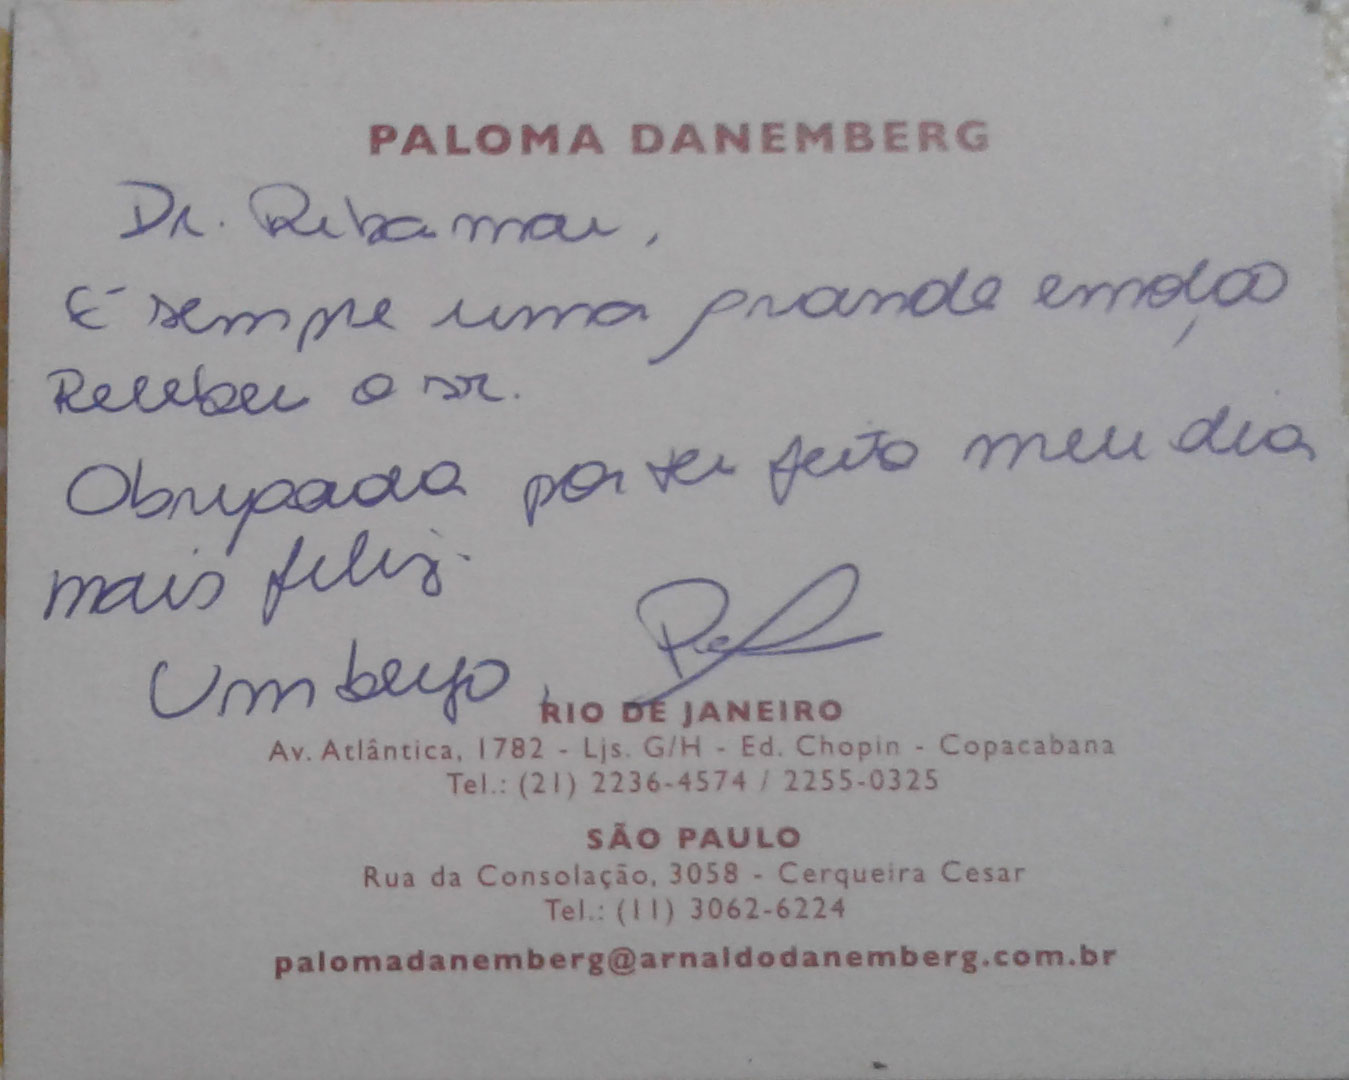 PALOMA DANEMBERG
Dr. Ribamar,
É sempre uma grande emoção
Receber o sr.
Obrigada por ter feito meu dia
mais feliz.
Um beijo,
RIO DE JANEIRO
Av. Atlântica, 1782 - Ljs. G/H - Ed. Chopin - Copacabana
Tel.: (21) 2236-4574 / 2255-0325
SÃO PAULO
Rua da Consolação, 3058 - Cerqueira Cesar
Tel.: (11) 3062-6224
palomadanemberg@arnaldodanemberg.com.br